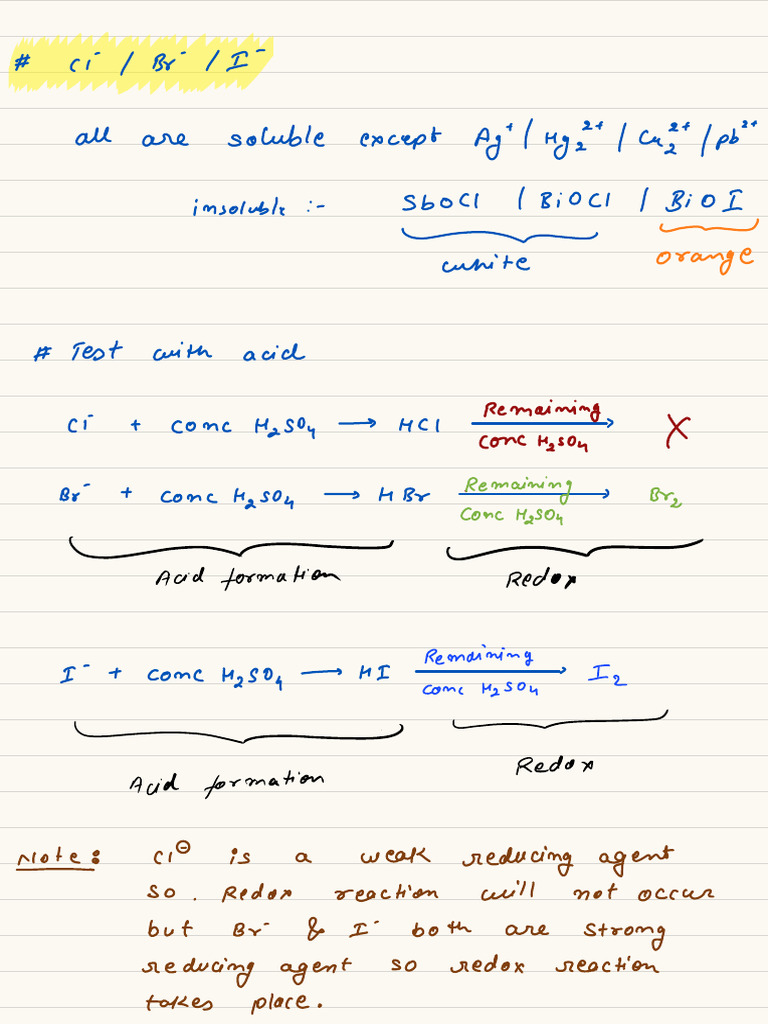 # Cl⁻ / Br⁻ / I⁻
all are soluble except Ag⁺ / Hg₂²⁺ / Cu₂²⁺ / pb²⁺
insoluble :- SbOCl / BiOCl / BiOI
white orange
# Test with acid
Cl⁻ + conc H₂SO₄ → HCl Remaining conc H₂SO₄ → X
Br⁻ + conc H₂SO₄ → HBr Remaining Conc H₂SO₄ → Br₂
Acid formation Redox
I⁻ + conc H₂SO₄ → HI Remaining conc H₂SO₄ → I₂
Acid formation Redox
Note: Cl⊖ is a weak reducing agent
so. Redox reaction will not occur
but Br⁻ & I⁻ both are strong
reducing agent so redox reaction
takes place.